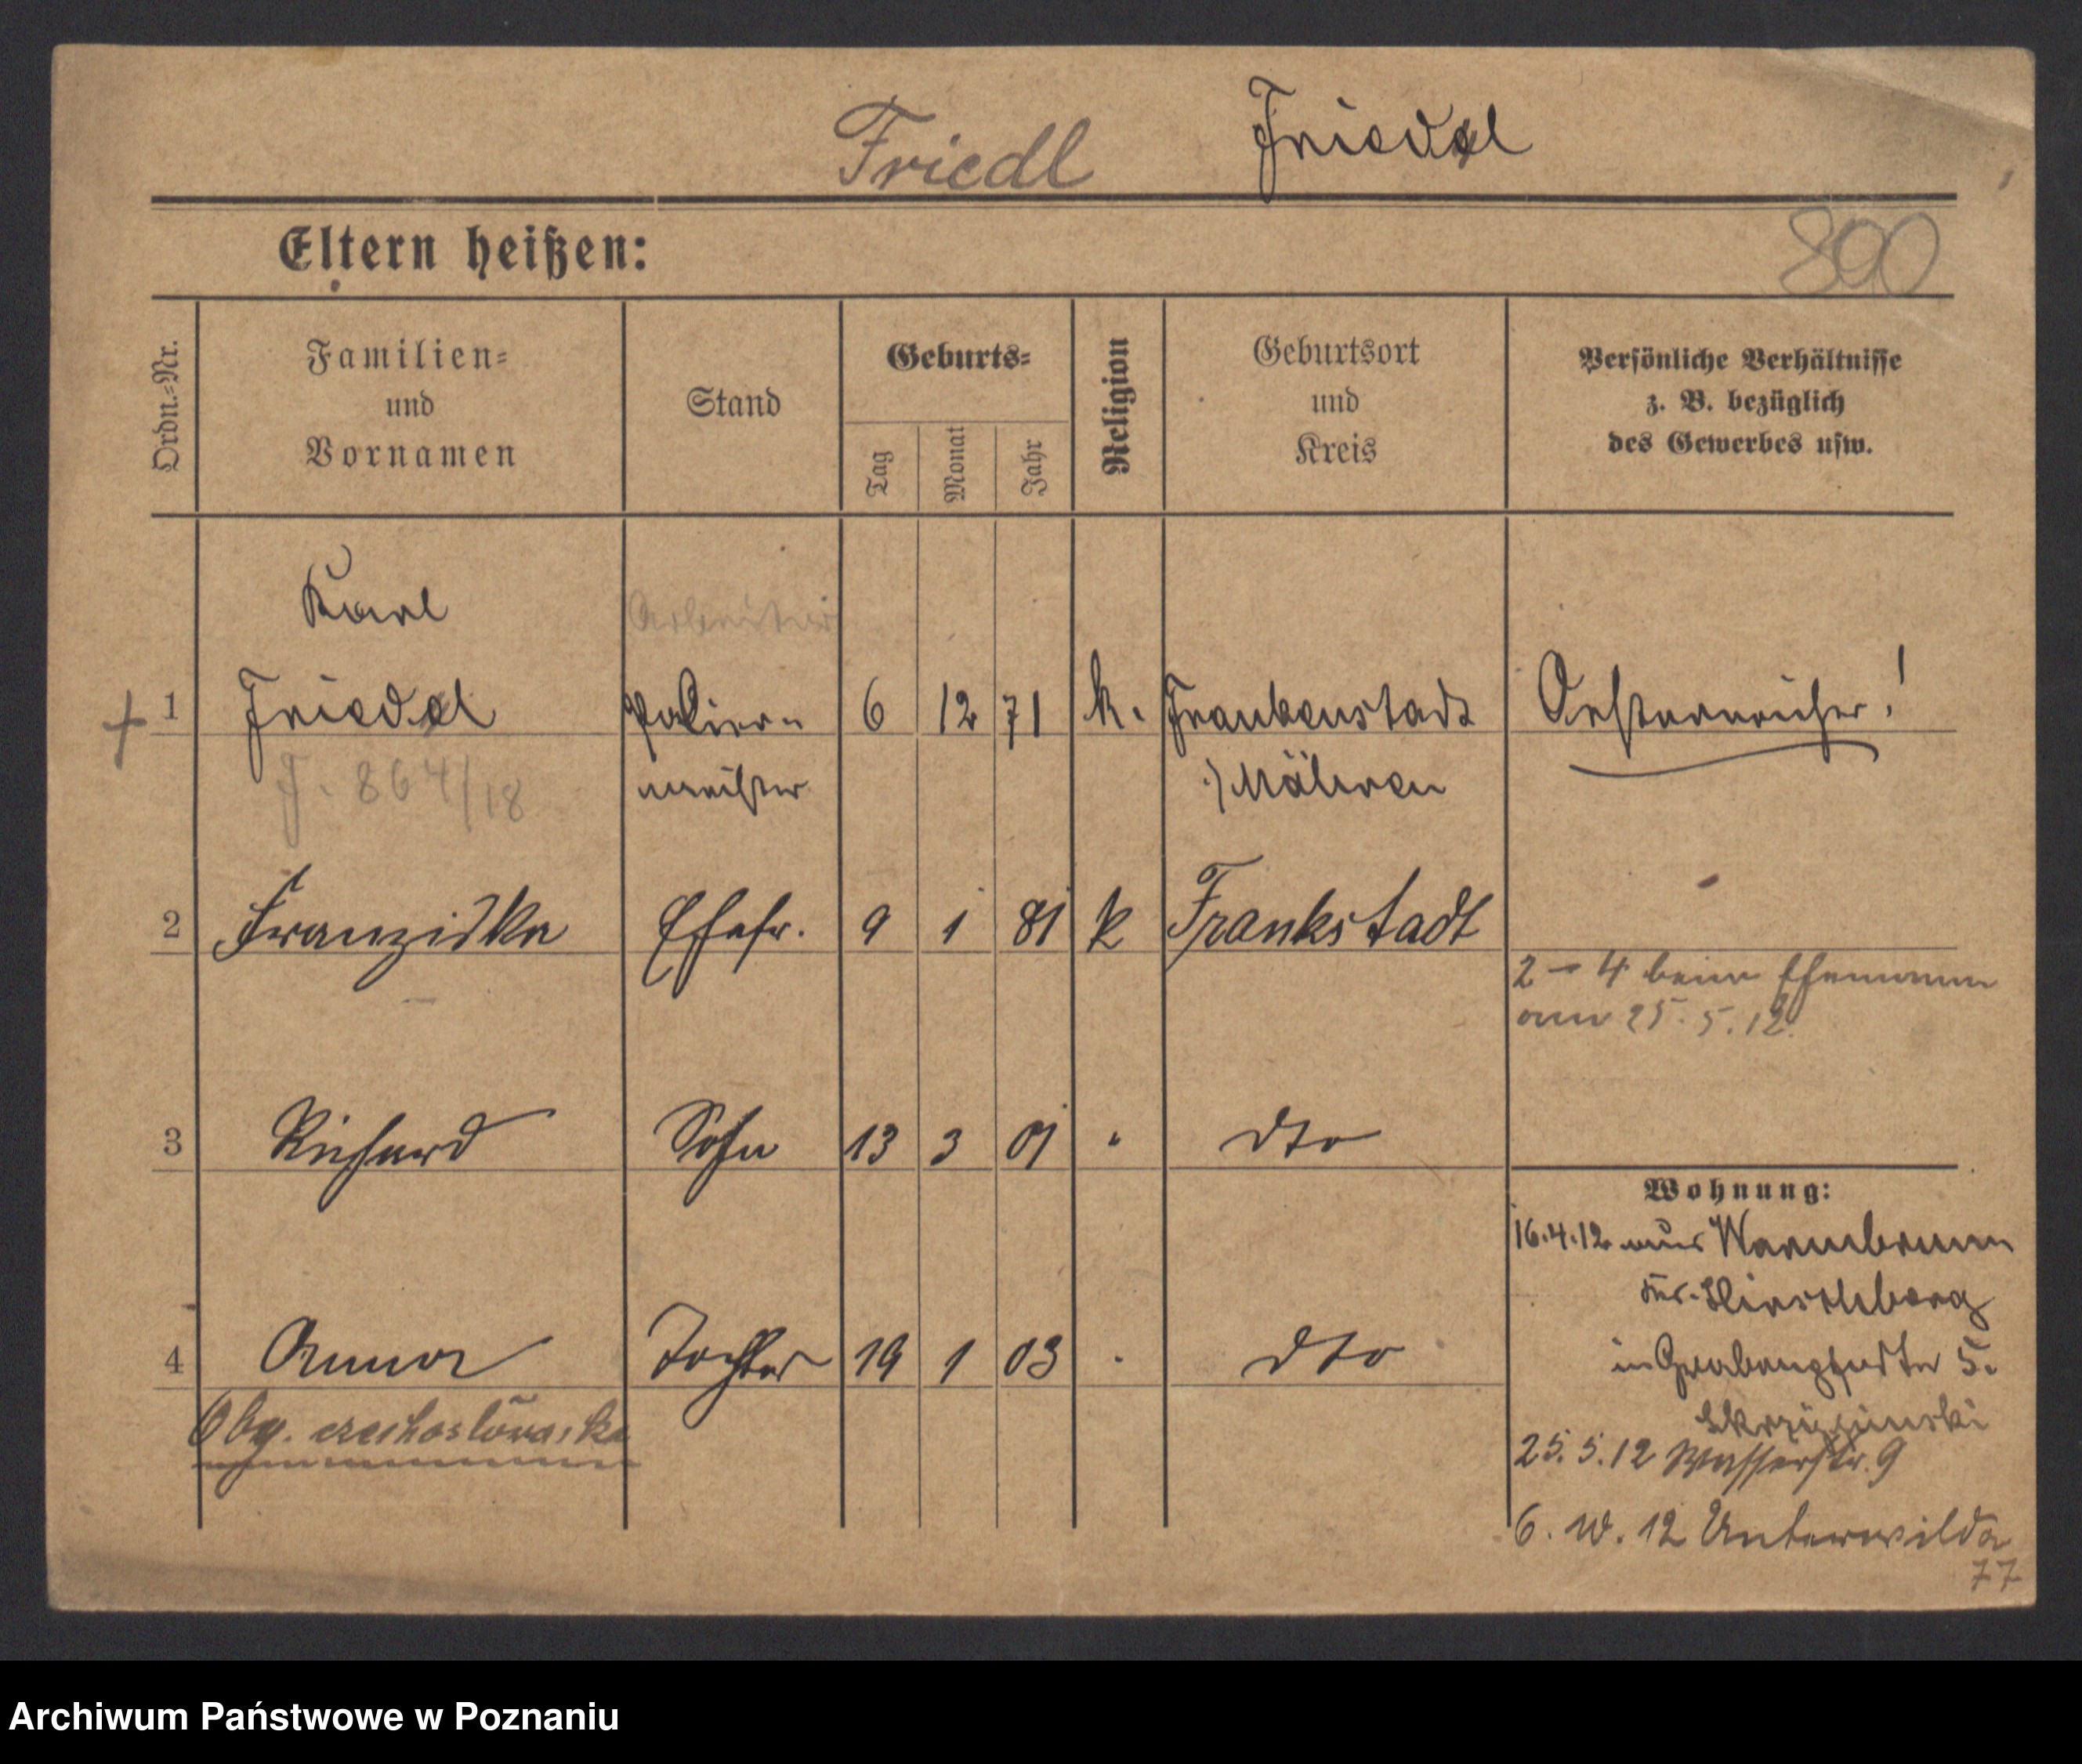 Friedl Friedel
Eltern heißen:
890
Ordn.=Nr.
Familien=
und
Vornamen
Stand
Geburts=
Tag
Monat
Jahr
Religion
Geburtsort
und
Kreis
Persönliche Verhältnisse
z. B. bezüglich
des Gewerbes usw.
Karl Arbeiter
+ 1 Friedel Polier= 6 12 71 k. Frankenstadt Oesterreicher!
J. 864/18 meister Mähren
2 Franziska Ehefr. 9 1 81 k Frankstadt
2 – 4 beim Ehemann
am 25.5.12.
3 Richard Sohn 13 3 01 " dto
Wohnung:
16.4.12 aus Warmbrunn
Kr. Hirschberg
4 Anna Tochter 19 1 03 " dto
in Grabenpforte 5.
Oby. czechoslowaska
25.5.12 Wasserstr. 9
6. 10. 12 Unterwilda
77
Archiwum Państwowe w Poznaniu